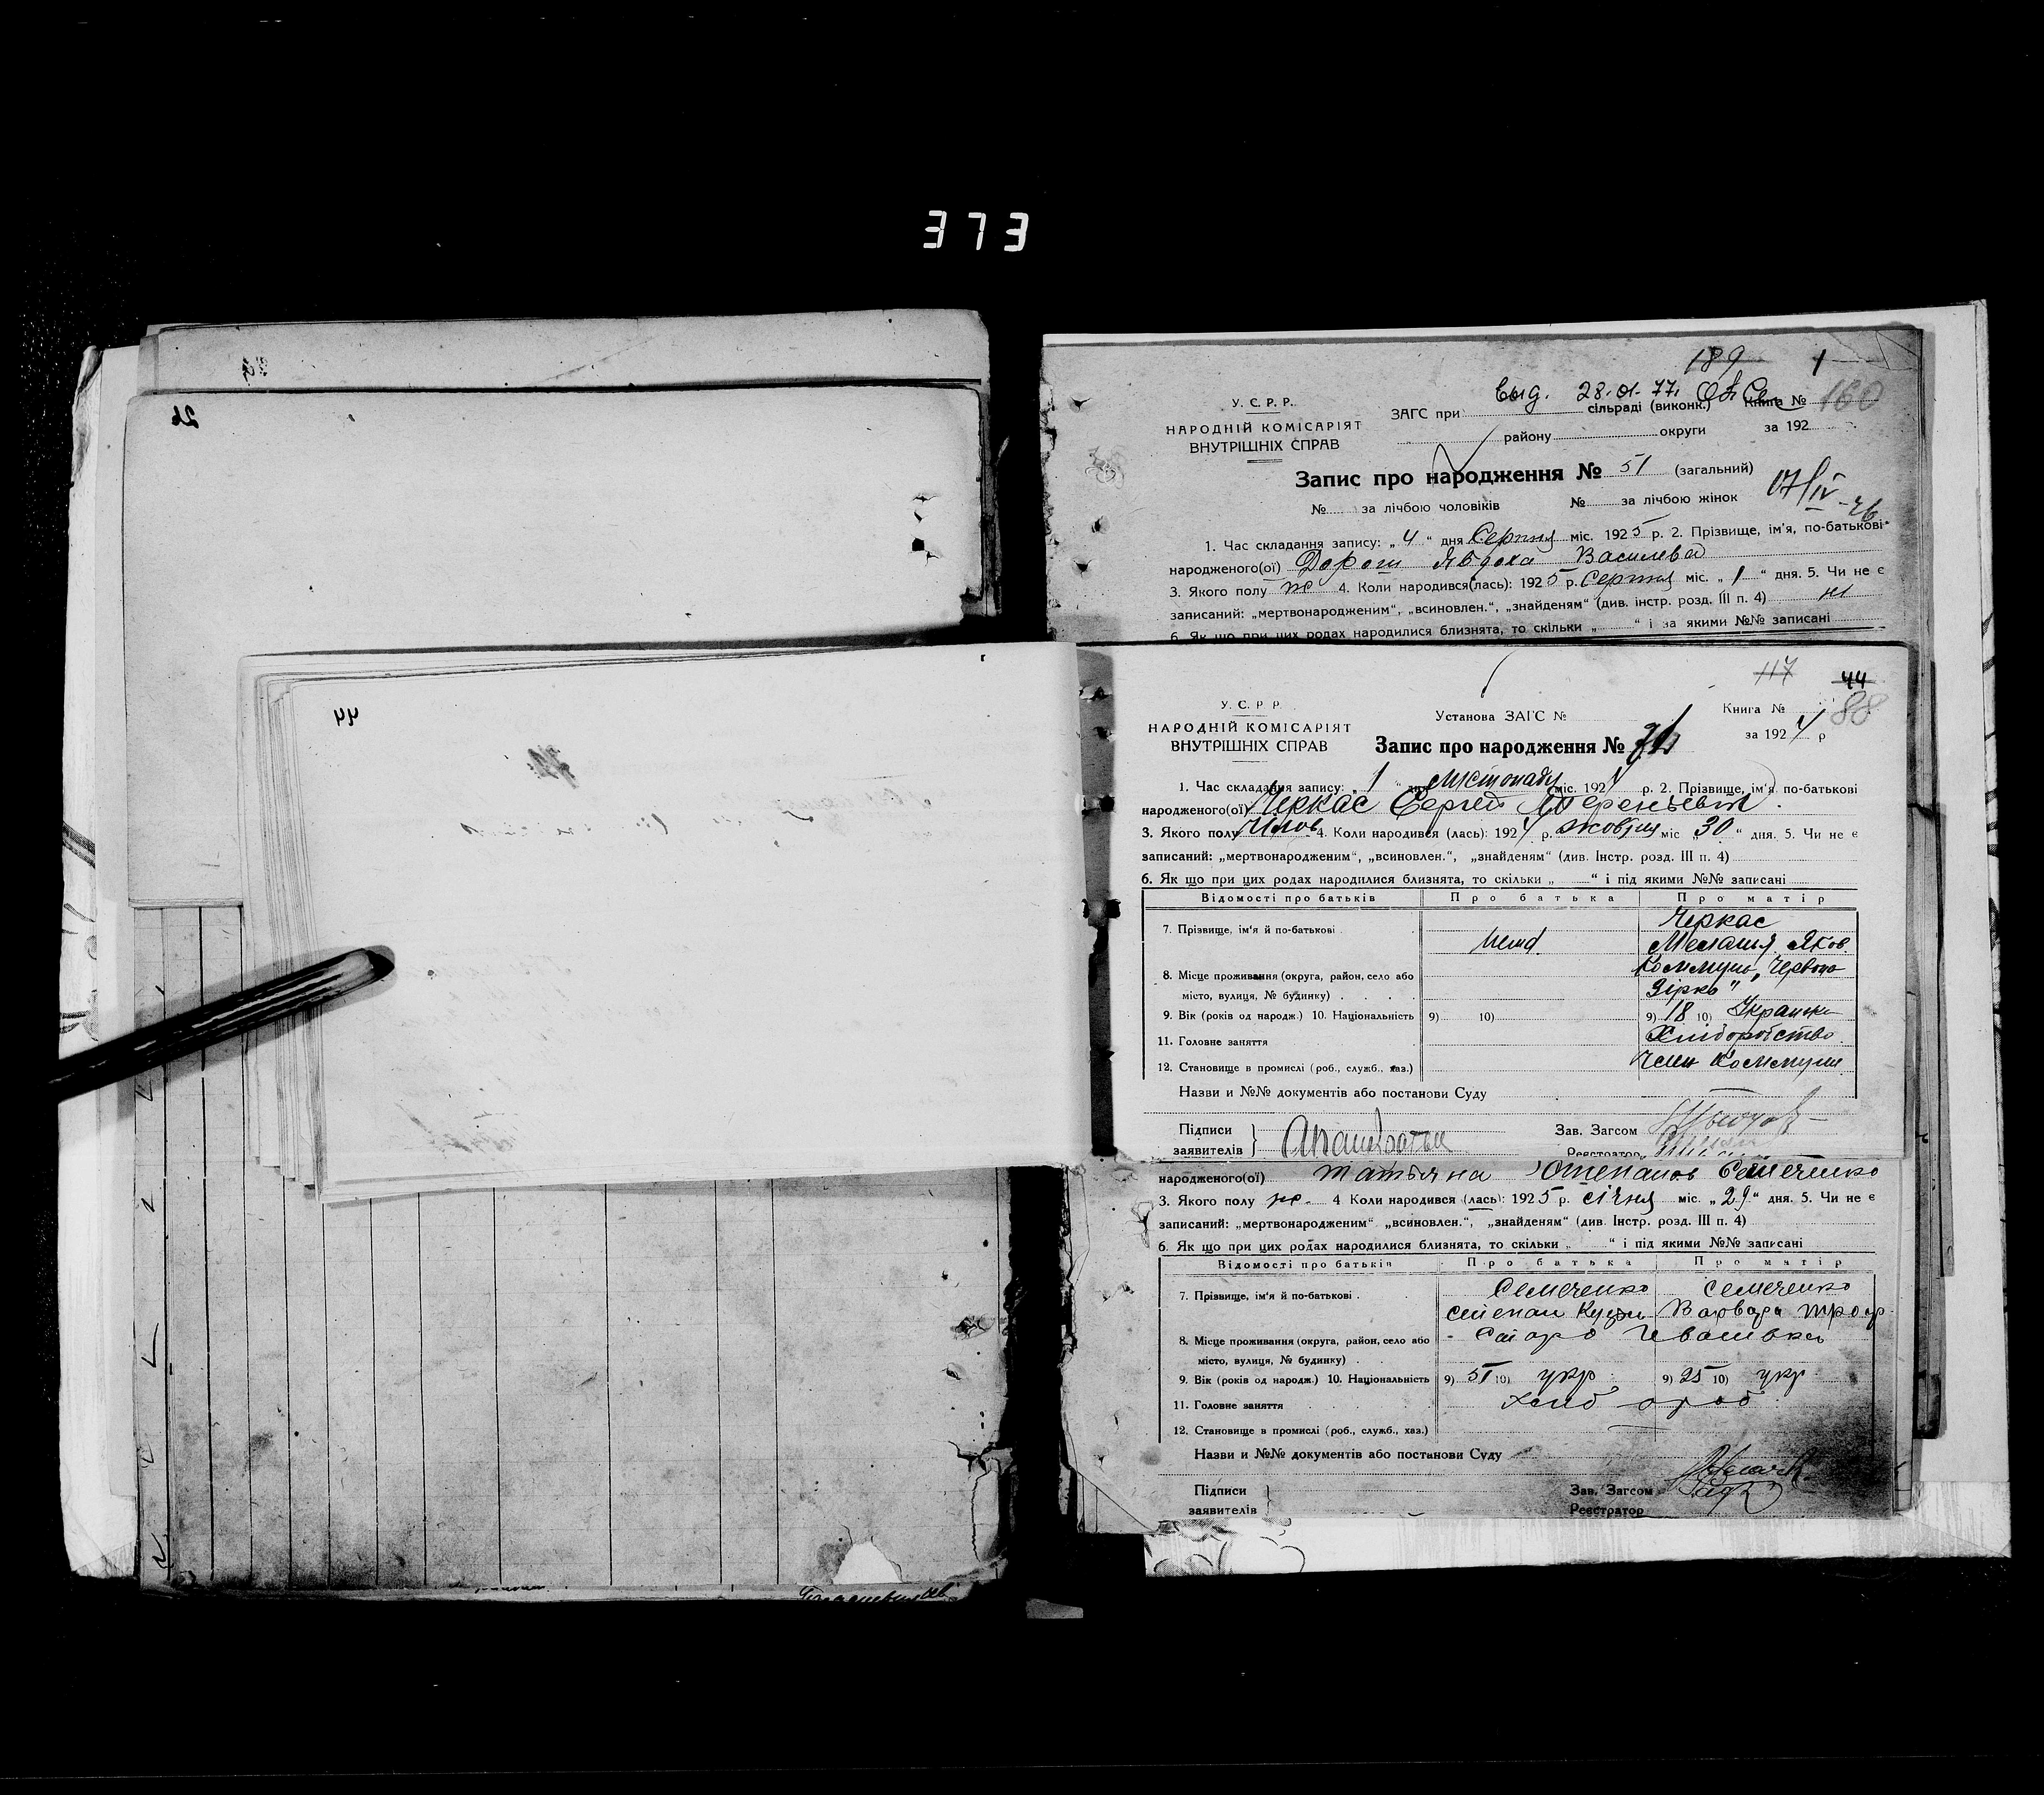 373
26
44
189 1
Выд. 28.01.77.
У. С. Р. Р.
ЗАГС при сільраді (виконк.) Книга № 160
НАРОДНІЙ КОМІСАРІЯТ
району округи за 192
ВНУТРІШНІХ СПРАВ
Запис про народження № 51 (загальний)
№ за лічбою чоловіків № за лічбою жінок
1. Час складання запису: „ 4 “ дня Серпня міс. 1925 р. 2. Прізвище, ім'я, по-батькові
народженого(ої) Дорош Явдоха Василева
3. Якого полу ж 4. Коли народився(лась): 1925 р. Серпня міс. „ 1 “ дня. 5. Чи не є
записаний: „мертвонародженим“, „всиновлен.“, „знайденям“ (див. інстр. розд. III п. 4) ні
6. Як що при цих родах народилися близнята, то скільки „ “ і за якими №№ записані
117 44
У. С. Р. Р.
Установа ЗАГС № Книга № 88
НАРОДНІЙ КОМІСАРІЯТ
за 1924 р
ВНУТРІШНІХ СПРАВ
Запис про народження №
1. Час складання запису: 1 дня Листопаду міс. 1924 р. 2. Прізвище, ім'я. по-батькові
народженого(ої) Черкас Сергей Терентьевич
3. Якого полу Чолов 4. Коли народився (лась): 1924 р. жовтня міс „ 30 “ дня. 5. Чи не є
записаний: „мертвонародженим“, „всиновлен.“, „знайденям“ (див. Інстр. розд. III п. 4)
6. Як що при цих родах народилися близнята, то скільки „ “ і під якими №№ записані
Відомості про батьків Про батька Про матір
Черкас
7. Прізвище, ім'я й по-батькові нема Мелания Яков
8. Місце проживання (округа, район, село або Коммуна „Червона
місто, вулиця, № будинку) Зірка“
9. Вік (років од народж.) 10. Національність 9) 10) 9) 18 10) Украинка
11. Головне заняття Хліборобство
12. Становище в промислі (роб., служб., хаз.) Член Коммуни
Назви и №№ документів або постанови Суду
Підписи Зав. Загсом
заявителів Реєстратор
народженого(ої) Татьяна Степанов Семеченко
3. Якого полу ж. 4 Коли народився (лась): 1925 р. січня міс. „ 29 “ дня. 5. Чи не є
записаний: „мертвонародженим“ „всиновлен.“, „знайденям“ (див. Інстр. розд. III п. 4)
6. Як що при цих родах народилися близнята, то скільки „ “ і під якими №№ записані
Відомості про батьків Про батька Про матір
7. Прізвище, ім'я й по-батькові Семеченко Семеченко
Степан Кузм Варвара Троф
8. Місце проживання (округа, район, село або Старо Ивановка
місто, вулиця, № будинку)
9. Вік (років од народж.) 10. Національність 9) 51 10) укр 9) 25 10) укр
11. Головне заняття Хлібороб
12. Становище в промислі (роб., служб., хаз.)
Назви и №№ документів або постанови Суду
Підписи Зав. Загсом
заявителів Реєстратор